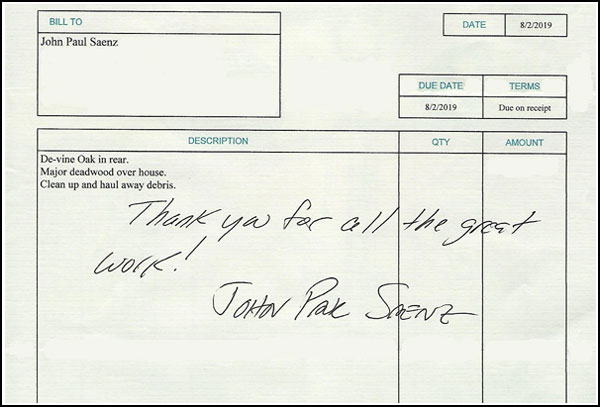 BILL TO
John Paul Saenz
DATE 8/2/2019
DUE DATE TERMS
8/2/2019 Due on receipt
DESCRIPTION QTY AMOUNT
De-vine Oak in rear.
Major deadwood over house.
Clean up and haul away debris.
Thank you for all the great
work!
John Paul Saenz